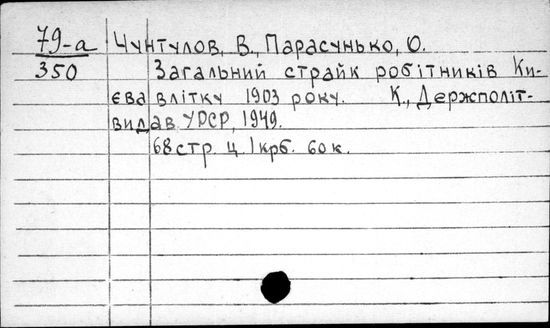 79-а Чунтулов, В., Парасунько, О.
350 Загальний страйк робітників Ки-
єва влітку 1903 року. К., Держполіт-
видав УРСР, 1949.
68 стр. ц. 1 крб. 60 к.